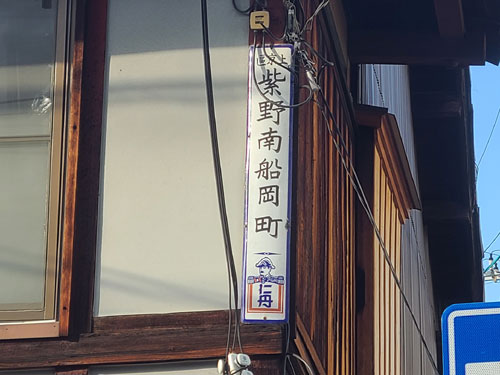 上京區
紫野南船岡町
仁丹